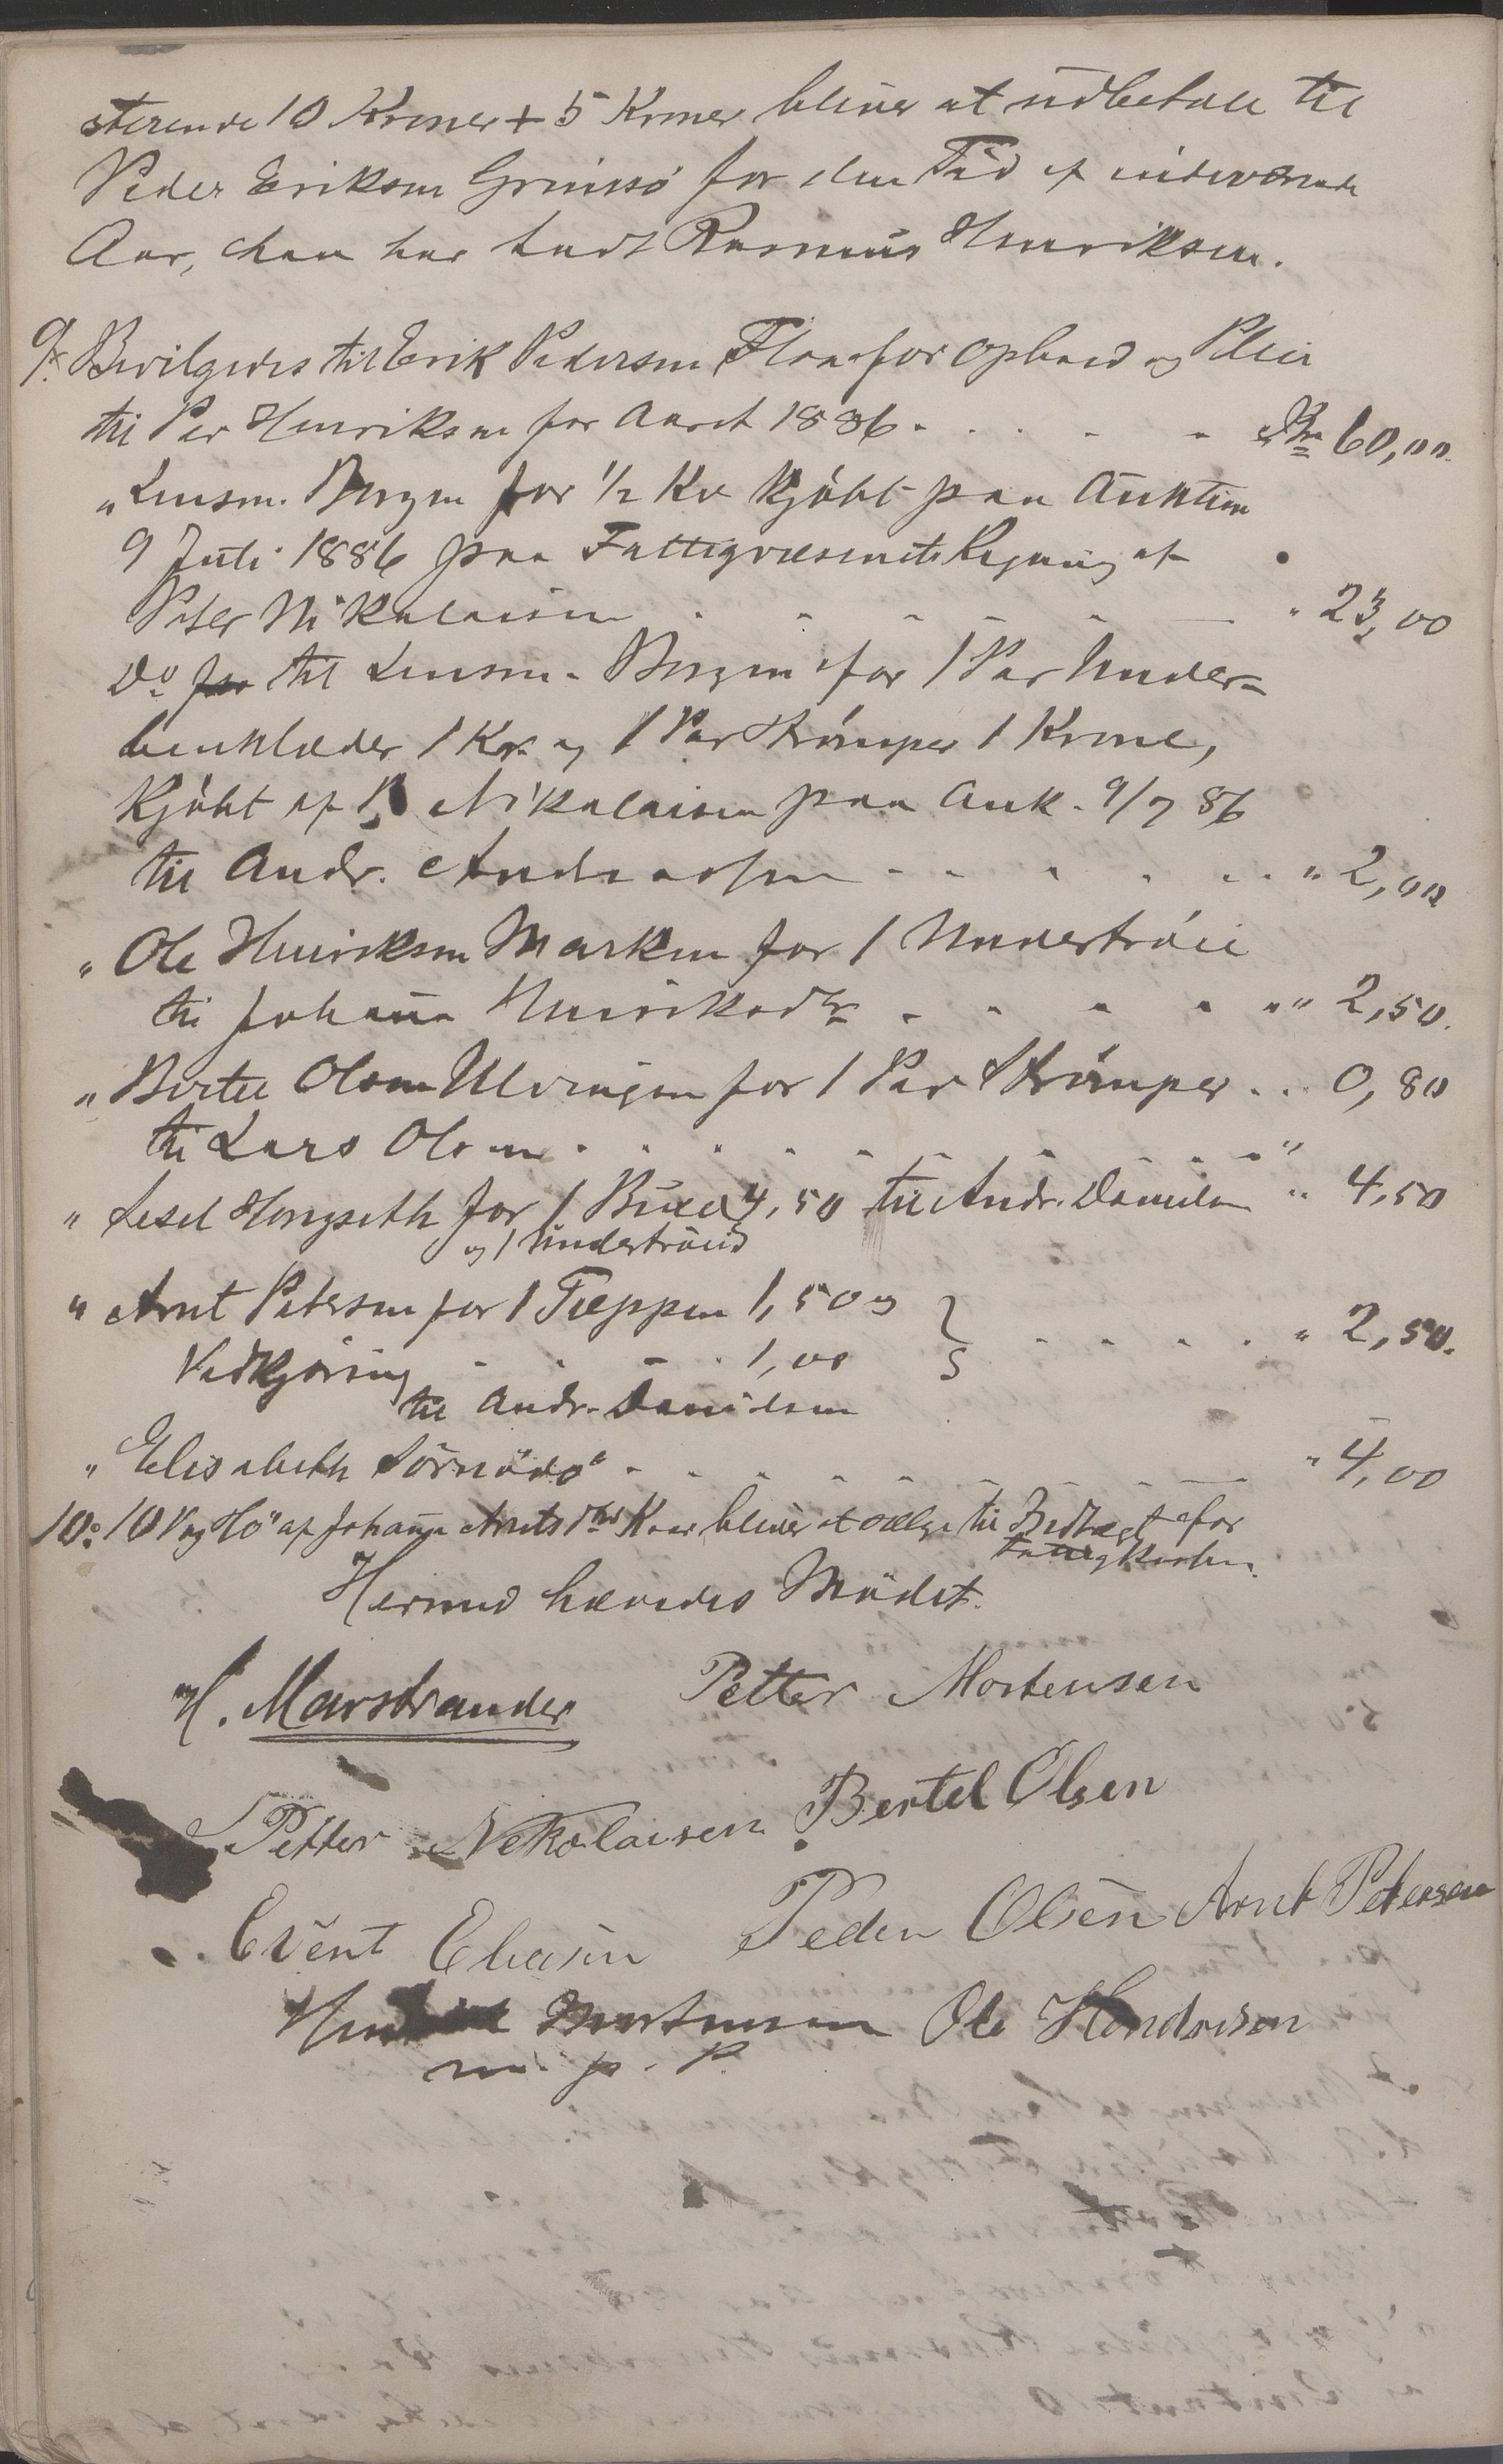 sterende 10 Kroner + 5 Kroner bliver at udbetale til
Peder Eriksen Grinsö for den Tid af indeværende
Aar, han har havt Rasmus Henriksen.
9. Bevilgedes til Erik Pedersen Floa for Ophold og Pleie
til Per Henriksen for Aaret 1886 . . . . . Kr 60,00.
" Lensm. Borgen for 1/2 Ko kjöbt paa Auktion
9 Juli 1886 paa Fattigvæsenets Regning af
Peter Nikolaisen . . . . . " 23,00
Do for til Lensm. Borgen for 1 Par Under-
benklæder 1 Kr. og 1 Par Strömper 1 Krone,
kjöbt af P. Nikolaisen paa Auk. 9/7 86
til Andr. Andreassen - - . . . . " 2,00
" Ole Henriksen Marken for 1 Undertröie
til Johanna Henriksdtr . . . . . " 2,50.
" Bertel Olsen Ulvingen for 1 Par Strömper . . 0,80
til Lars Olsen . . . . . . . . "
" Sesel Hongseth for 1 Buxe 4,50 til Andr. Danielsen " 4,50
og 1 Undertröie
" Arnt Petersen for 1 Tæppen 1,50 og
Vedkjöring . . - . 1,00 } - . . . . " 2,50.
til Andr. Danielsen
" Elisabeth Sörnödö . . . . . . " 4,00
10. 10 Vog Hö af Johanna Arntsdtrs Kaar bliver at sælge til Indtægt for
Fattigkassen.
Hermed hævedes Mödet.
H. Marstrander Petter Mortensen
Petter Nekolaisen Bertel Olsen
Event Eliasen Peder Olsen Arnt Petersen
Mortensen Ole Hendrisen
m. p. P.